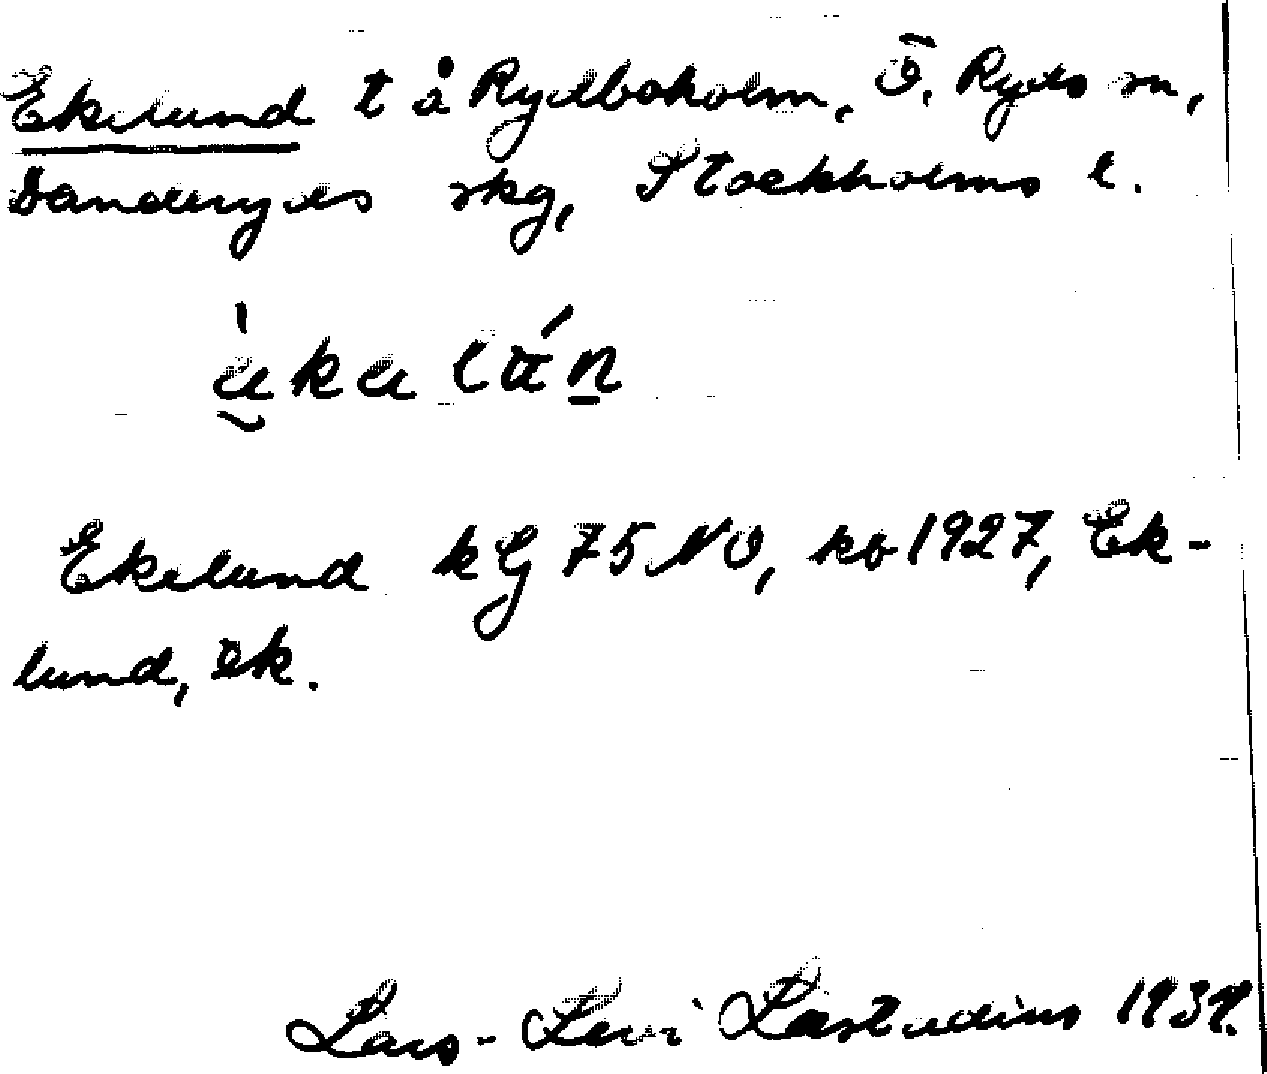 Ekelund t å Rydboholm, Ö. Ryds sn,
Danderyds skg, Stockholms l.
Ekelund kG 75 NO, kb 1927, Ek-
lund, ek.
Lars-Levi Læstadius 1939.